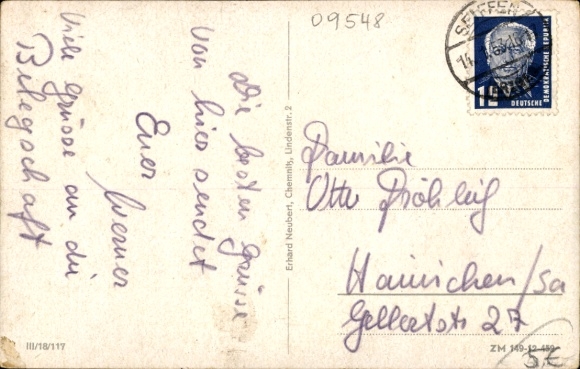 09548
Die besten Grüsse
von hier sendet
Euer Werner
Viele Grüsse an die
Belegschaft
Erhard Neubert, Chemnitz, Lindenstr. 2
SEIFFEN
DEUTSCHE
DEMOKRATISCHE REPUBLIK
Familie
Otto Fröhlig
Hainichen/Sa
Gellertstr 27
III/18/117
ZM 149-12-459